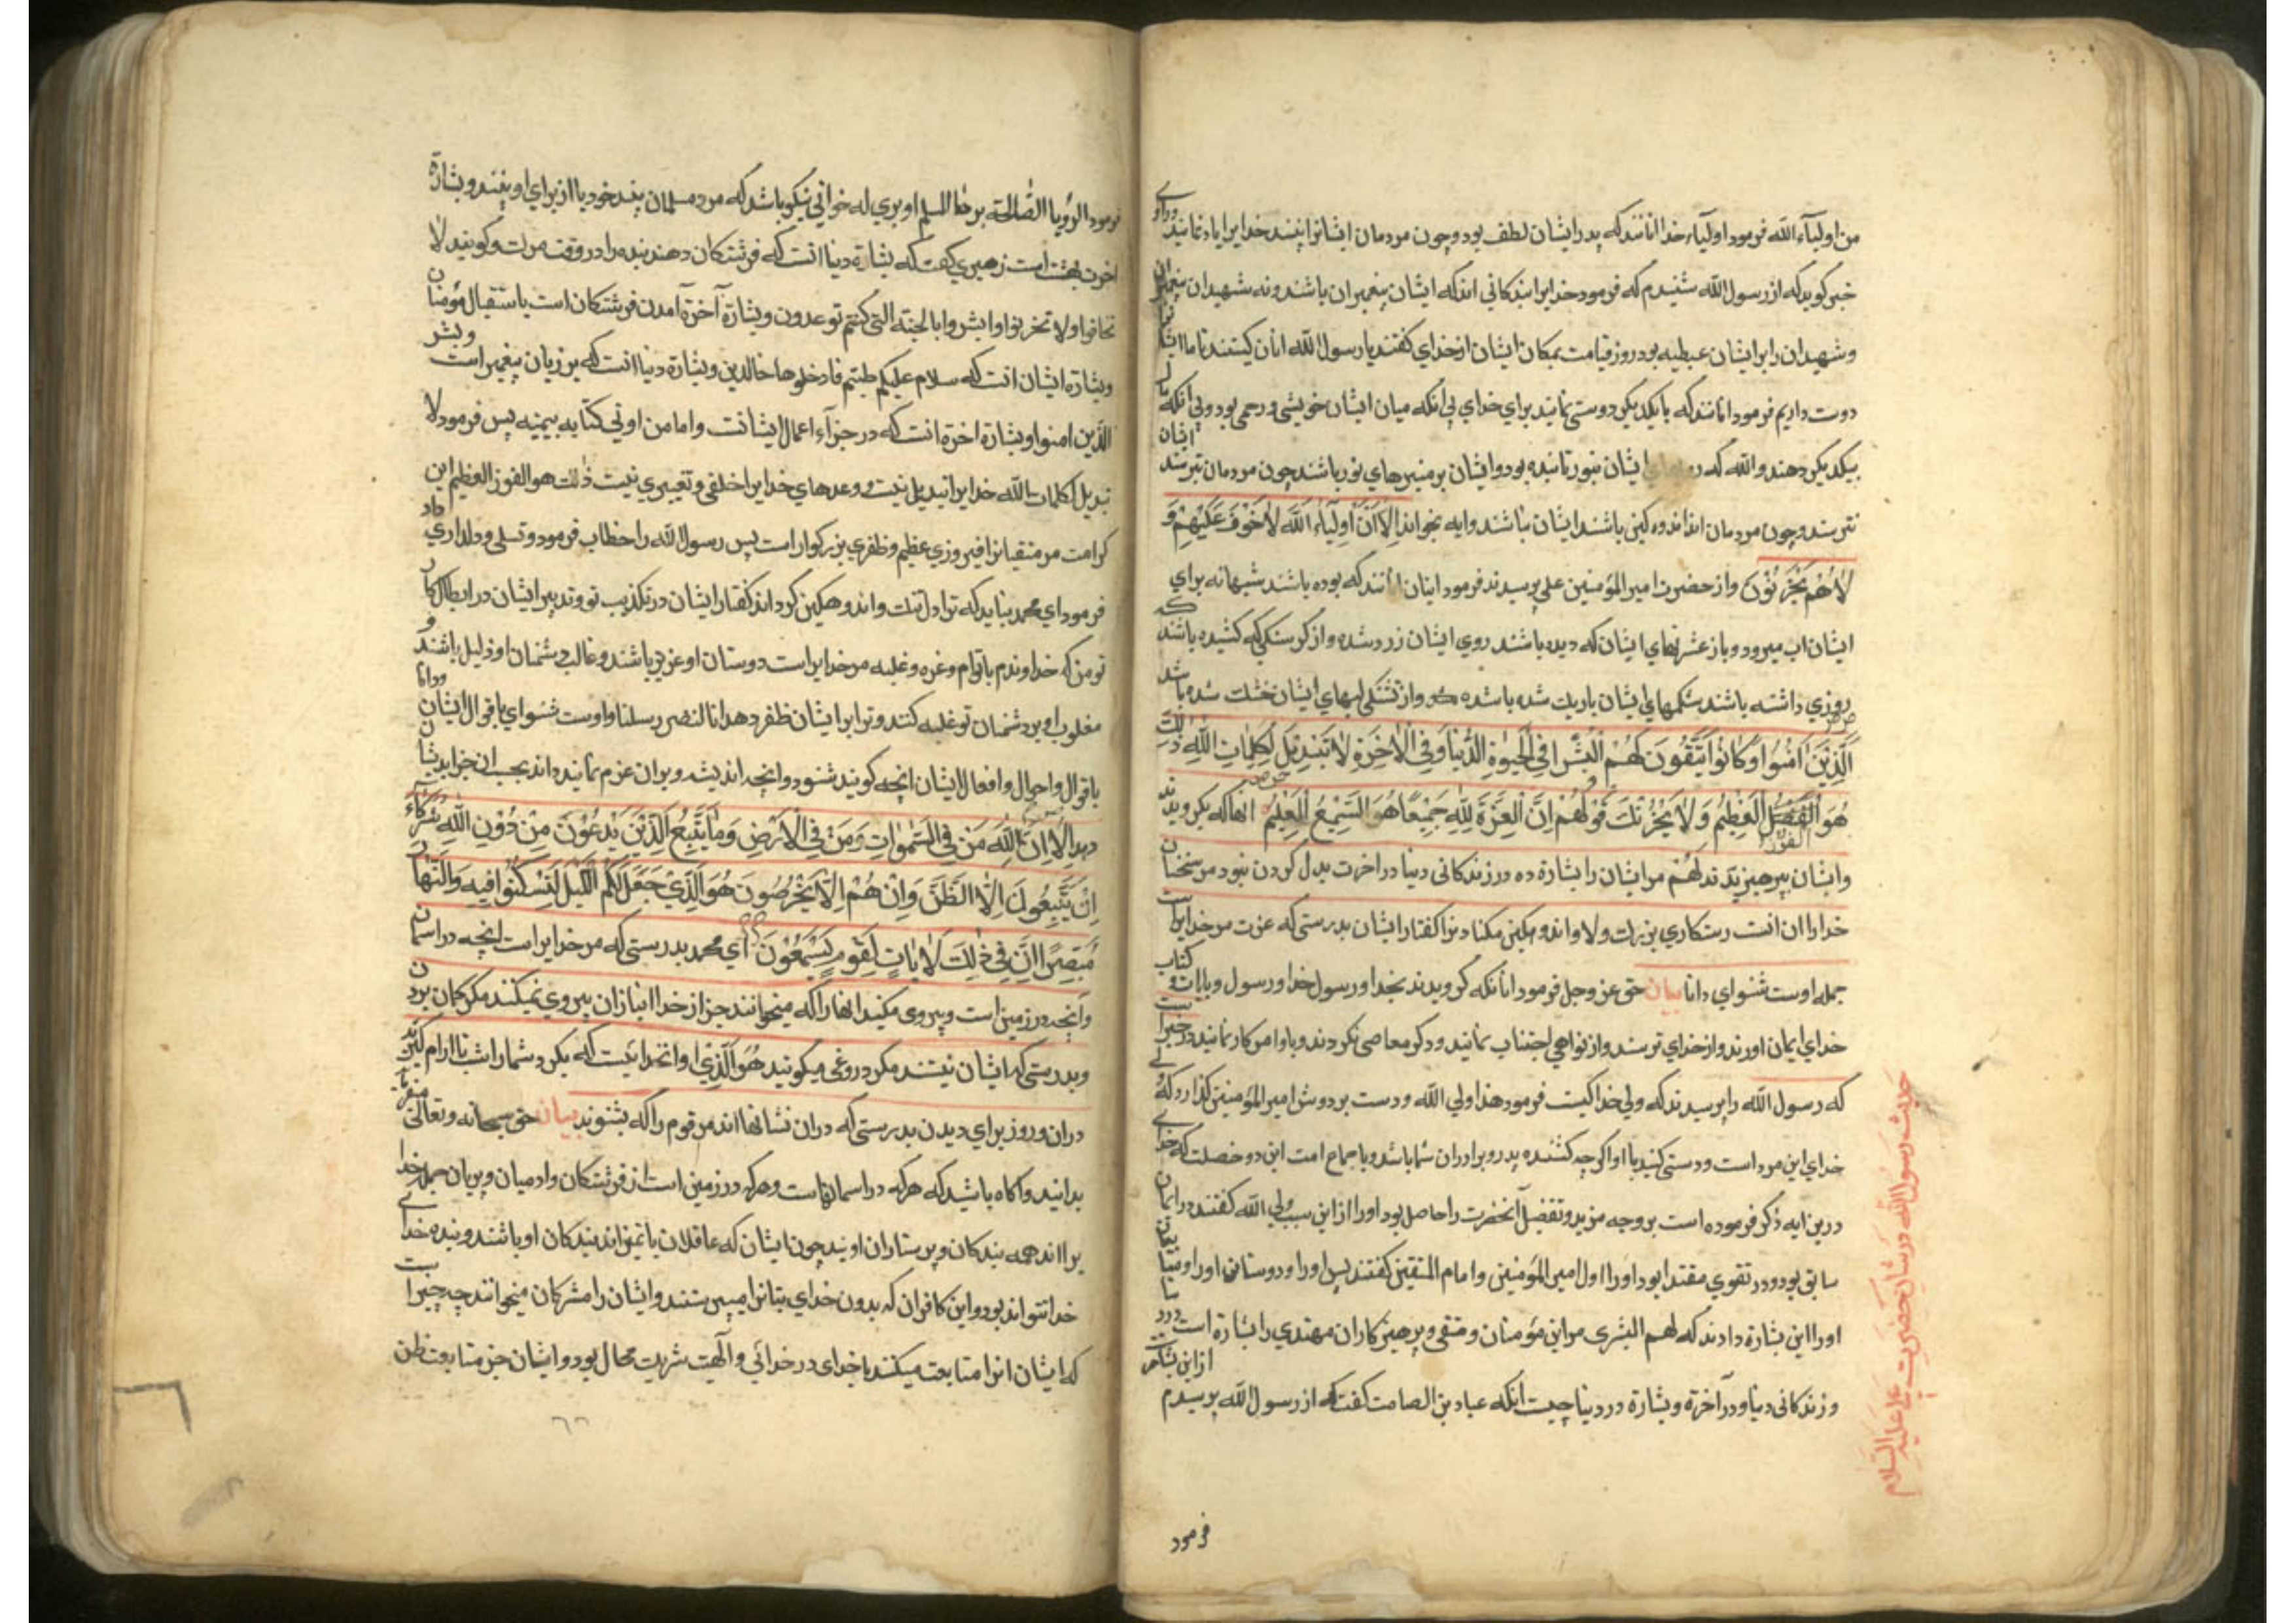 من اولیآء الله فرمود اولیآء خدا انانند که پدر ایشان لطف بود و چون مردمان ایشانرا بینند خدایرا یاد نمایند
خبر کوید که از رسول الله شنیدم که فرمود خدایرا بندکانی اند که ایشان پیغمبران باشند و نه شهیدان پیغمبران
و شهیدان را بر ایشان غبطه بود روز قیامت بمکان ایشان از خدای کفتند یا رسول الله انان کیستند تا ما ایشا
دوست داریم فرمود انانند که با یکدیکر دوستی نمایند برای خدای بی انکه میان ایشان خویشی و رحمی بود و بی انکه مال
بیکدیکر دهند والله که ایشان بنور تابنده بود و ایشان بر منبرهای نور باشند چون مردمان بترسند ایشان
نترسند و چون مردمان اندوه کین باشند ایشان نباشند و ایه بخواند الا ان اولیآء الله لا خوف علیهم و
لا هم یحزنون و از حضرت امیر المؤمنین علی پرسیدند فرمود اینان انند که بوده باشند شبها نه برای
ایشان اب میرود و باز عشرتهای ایشان که دیده باشند روی ایشان زرد شده و از کرسنکی که کشیده باشند که
روزی داشته باشند شکمهای ایشان باریک شده باشده که و از تشنکی لبهای ایشان خشک شده باشد
الذین امنوا و کانوا یتقون لهم البشرا فی الحیوة الدنیا و فی الاخرة لا تبدیل لکلمات الله ذلک
هو الفضل العظیم و لا یحزنک قولهم ان العزة لله جمیعا هو السمیع العلیم انها که بکرویدند
الفوز
وایشان پرهیزیدند لهم مر ایشان را بشارة ده در زندکانی دنیا در اخرت بدل کردن نبود مر سخنان
خدارا ان انست رستکاری بزرک و لا و اندوهکین مکنا دنرا کفتار ایشان بدرستی که عزت مر خدایراست
جمله اوست شنوای دانا بیان حق عز وجل فرمود انانکه کرویدند بخدا و رسول خدا و رسول و بایات و کتاب
خدای ایمان اورند و از خدای ترسند و از نواهی اجتناب نمایند و دکر معاصی نکردند و باوامر کار نمایند در خبراست
که رسول الله را پرسیدند که ولی خدا کیست فرمود هذا ولی الله و دست بر دوش امیر المؤمنین کذارد که
خدای این مرد است و دستی کنید با او اکرچه کشنده پدر و برادران شما باشد و باجماع امت این دو خصلت که خدای
درین ایه ذکر فرموده است بر وجه مزید و تفضل آنحضرت را حاصل بود و اورا از این سبب ولی الله کفتند در ایمان
سابق بود و در تقوی مقتدا بود اورا اول امیر المؤمنین و امام المتقین کفتند پس اورا و دوستان اورا و متابعان
اورا این بشارة دادند که لهم البشری مر این مؤمنان و متقی و پرهیزکاران مهتدی را بشارة است در
و زندکانی دنیا و در آخرة و بشارة در دنیا چیست انکه عباد بن الصامت کفت که از رسول الله پرسیدم از این بشارة
فرمود
حدیث رسول الله در شان حضرت علی علیه السلام
فرمود الرؤیا الصالحة او یری له خوابی نیکو باشد که مرد مسلمان بیند خود یا از برای او بینند و بشارة
اخرت بهشت است زهری کفت که بشارة دنیا انست که فرشتکان دهند بنده را در وقت مرک و کویند لا
تخافوا ولا تحزنوا وابشروا بالجنة التی کنتم توعدون و بشارة آخرة آمدن فرشتکان است باستقبال مؤمنان
و بشارة ایشان انست که سلام علیکم طبتم فادخلوها خالدین و بشارة دنیا انست که بر زبان پیغمبر است و بشر
الذین امنوا و بشارة اخرة انست که در جزآء اعمال ایشانست و اما من اوتی کتابه بیمینه پس فرمود لا
تبدیل لکلمات الله خدایرا تبدیل نیست و وعدهای خدایرا خلفی و تغییری نیست ذلک هو الفوز العظیم این
کرامت مر متقیانرا فیروزی عظیم و ظفری بزرکوار است پس رسول الله را خطاب فرمود و تسلی و دلداری داد
فرمود ای محمد بناید که ترا دل تنک و اندوهکین کرداند کفتار ایشان در تکذیب تو و تدبیر ایشان در ابطال کار
تو من که خداوندم باتوام و عزه و غلبه مر خدایراست دوستان او عزیز باشند و غالب و دشمنان او ذلیل باشند و
مغلوب او بر دشمنان تو غلبه کنند و ترا بر ایشان ظفر دهد انا لننصر رسلنا و اوست شنوای باقوال ایشان و دانا
باقوال و احوال و افعال ایشان انچه کویند شنود و انچه اندیشند و بران عزم نمایند داند بحسب ان جزا بدیشان
دهد الا ان لله من فی السموات و من فی الارض و ما یتبع الذین یدعون من دون الله شرکآء
ان یتبعون الا الظن و ان هم الا یخرصون هو الذی جعل لکم اللیل لتسکنوا فیه والنهار
مبصرا ان فی ذلک لایات لقوم یسمعون ای محمد بدرستی که مر خدایراست انچه در اسمان
و انچه در زمین است و پیروی مکنید انها را که میخوانند جز از خدا انبازان پیروی نمیکنند مکر کمان بردن
و بدرستی که ایشان نیستند مکر دروغی میکویند هو الذی او انخدائیست که بکرد شما را شب تا ارام کیرند
دران و روز برای دیدن بدرستی که دران نشانها اند مر قوم را که بشنوند بیان حق سبحانه و تعالی میفرماید
بدانید و اکاه باشید که هرکه در اسمانهاست و هرکه در زمین است از فرشتکان و ادمیان و پریان جمله خدا
یرا اند همه بندکان و پرستاران اویند چون ایشان که عاقلان باتمیزاند بندکان او باشند و بنده خدای
خدا نتواند بود و این کافران که بدون خدای بتانرا میپرستند و ایشان را مشرکان میخوانند چه چیز است
که ایشان انرا متابعت میکنند با خدای در خدائی و الهیت شریک محال بود و ایشان جز متابعت ظن
٦٦